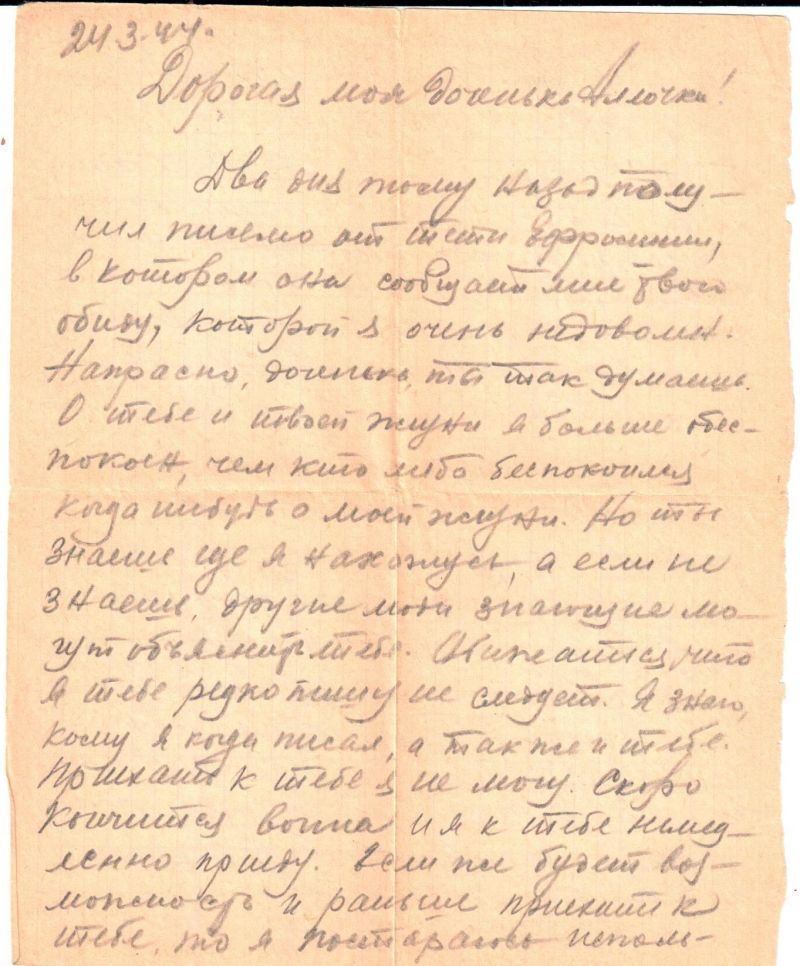 24.3.44.
Дорогая моя доченька Аллочка!
Два дня тому назад полу-
чил письмо от тети Ефросинии,
в котором она сообщает мне твою
обиду, которой я очень недоволен.
Напрасно, доченька, ты так думаешь.
О тебе и твоей жизни я больше обес-
покоен, чем кто либо беспокоился
когда нибудь о моей жизни. Но ты
знаешь где я нахожусь, а если не
знаешь, другие люди знающие мо-
гут объяснить тебе. Обижаться, что
я тебе редко пишу не следует. Я знаю,
кому я когда писал, а также и тебе.
Приехать к тебе я не могу. Скоро
кончится война и я к тебе немед-
ленно приеду. Если же будет воз-
можность и раньше приехать к
тебе, то я постараюсь исполь-